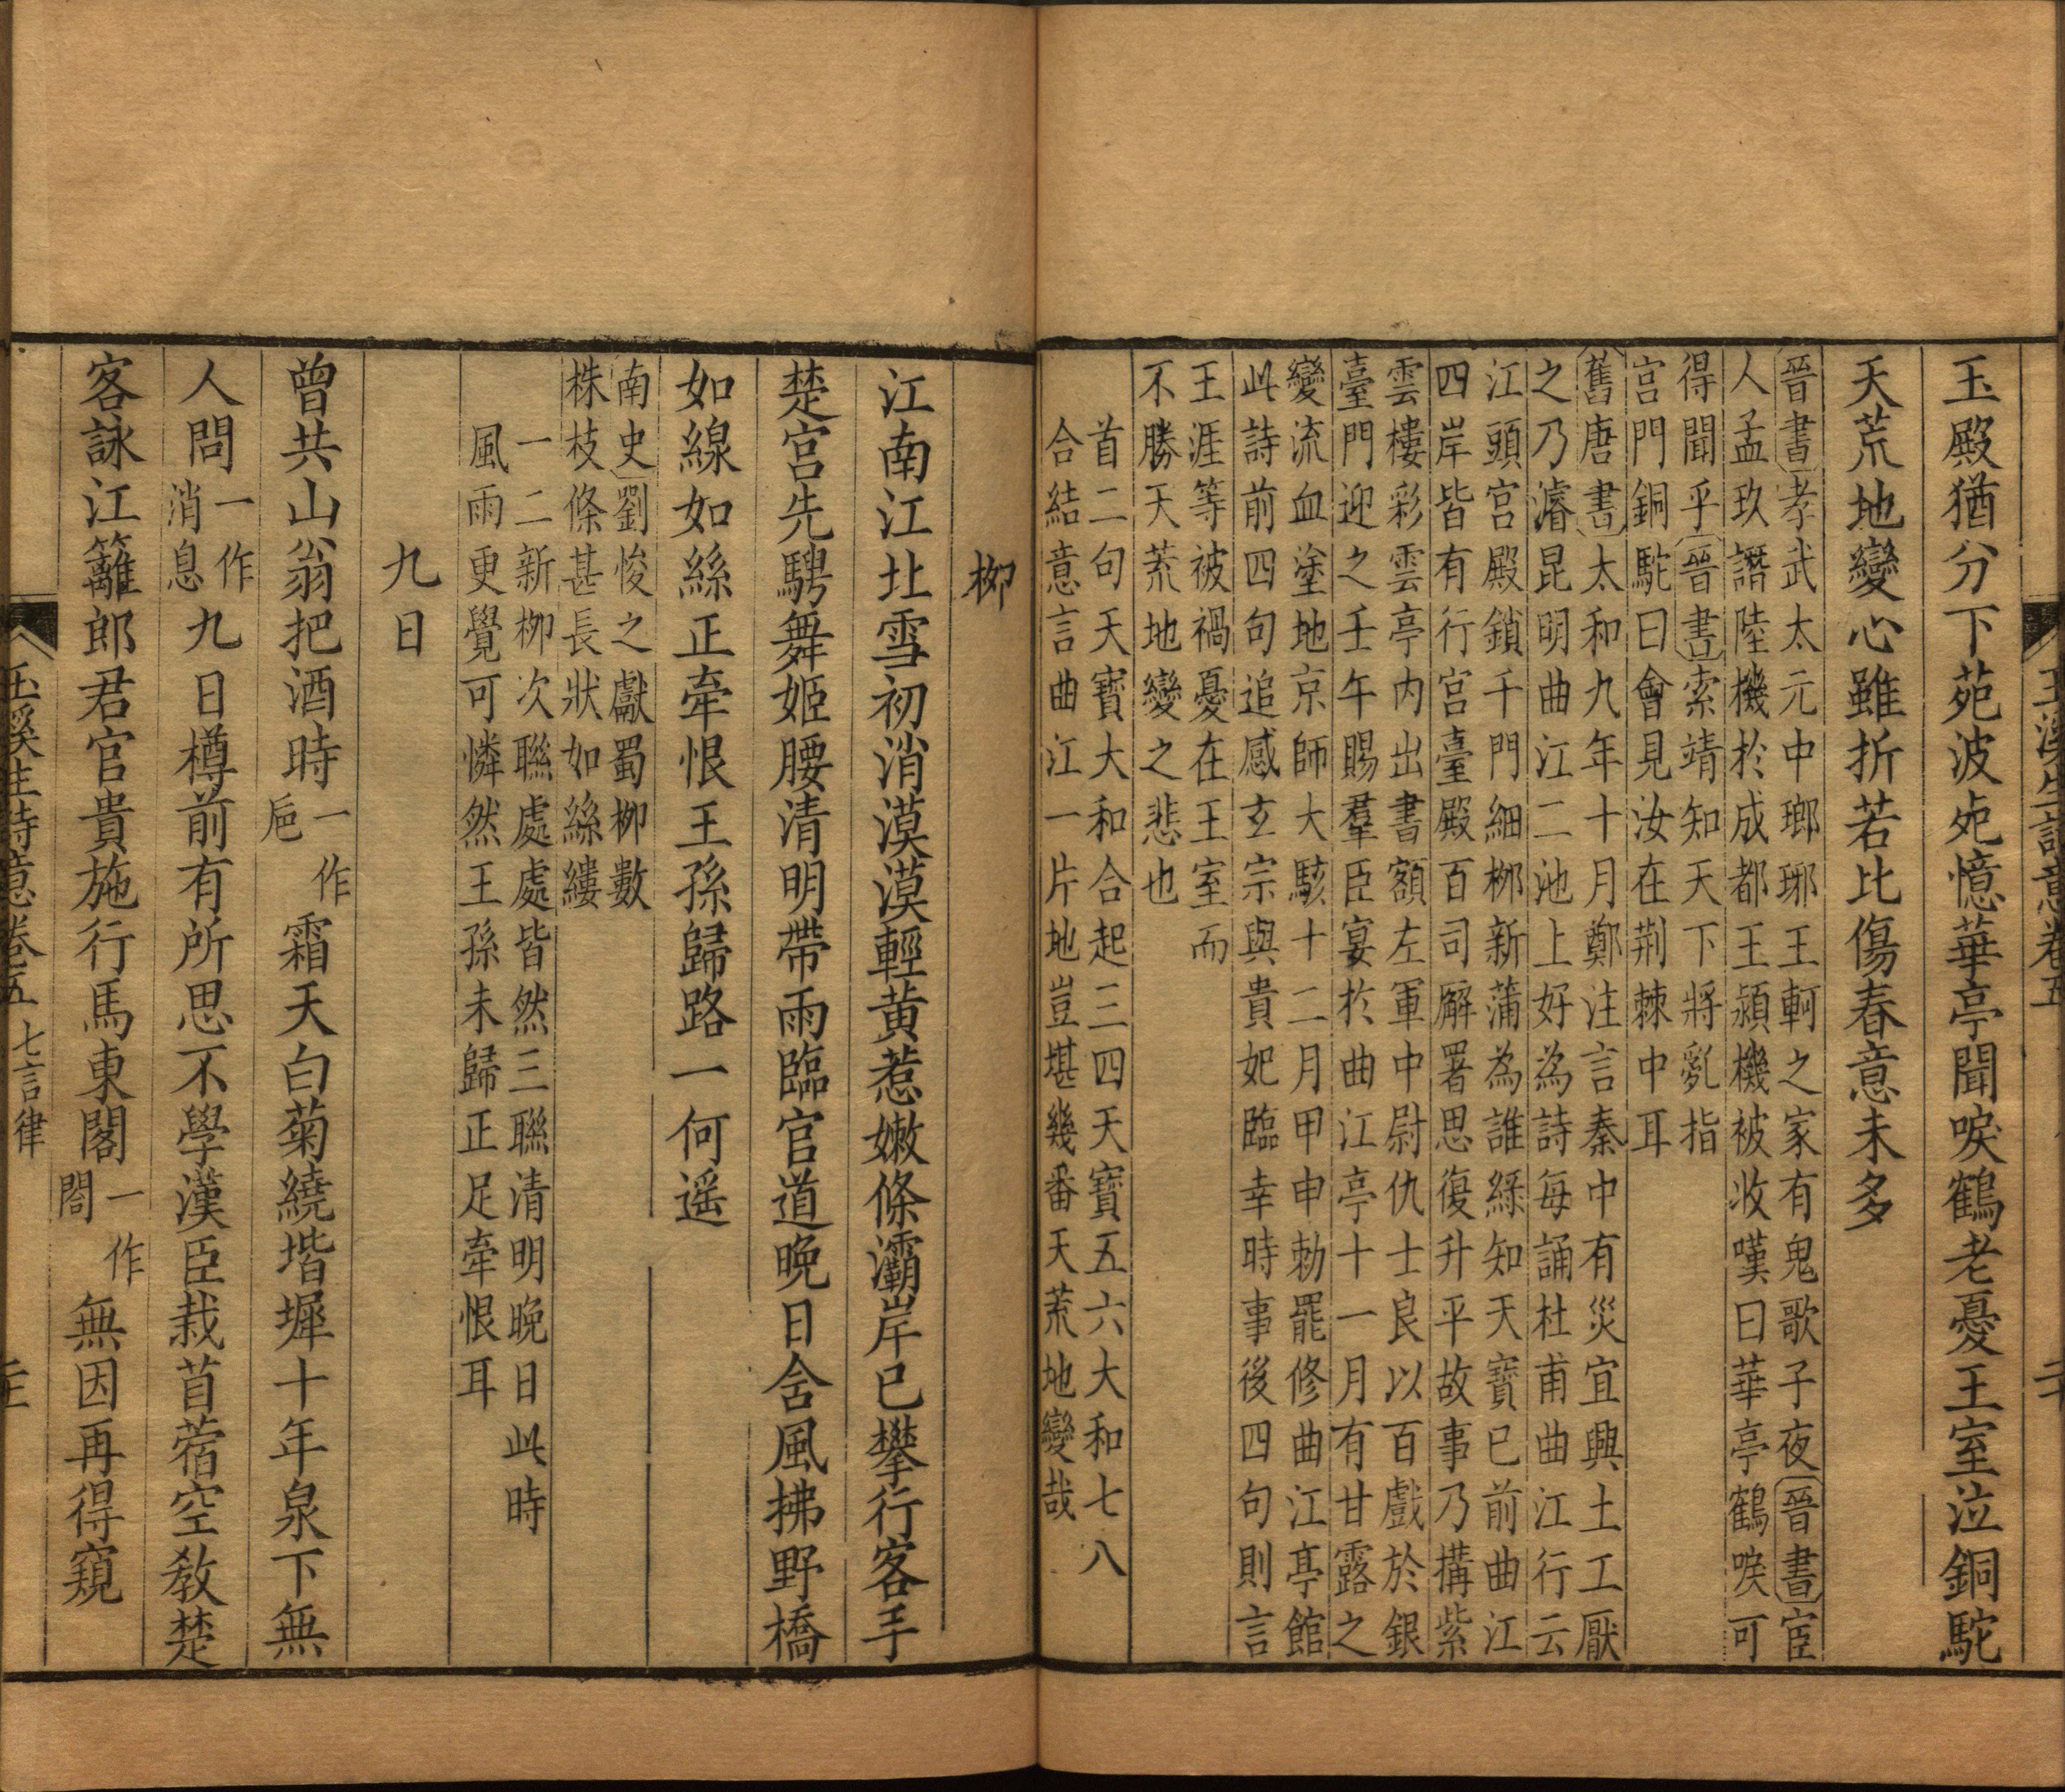 玉殿猶分下苑波死憶華亭聞唳鶴老憂王室泣銅駝
天荒地變心雖折若比傷春意未多
晉書孝武太元中瑯琊王軻之家有鬼歌子夜晉書宦
人孟玖譖陸機於成都王潁機被收嘆曰華亭鶴唳可
得聞乎晉書索靖知天下將亂指
宮門銅駝曰會見汝在荆棘中耳
舊唐書太和九年十月鄭注言秦中有災宜興土工厭
之乃濬昆明曲江二池上好為詩每誦杜甫曲江行云
江頭宮殿鎖千門細栁新蒲為誰綠知天寶已前曲江
四岸皆有行宮臺殿百司廨署思復升平故事乃搆紫
雲樓彩雲亭内出書額左軍中尉仇士良以百戲於銀
臺門迎之壬午賜羣臣宴於曲江亭十一月有甘露之
變流血塗地京師大駭十二月甲申勅罷修曲江亭館
此詩前四句追感玄宗與貴妃臨幸時事後四句則言
王涯等被禍憂在王室而
不勝天荒地變之悲也
首二句天寶大和合起三四天寶五六大和七八
合結意言曲江一片地豈堪幾番天荒地變哉
玉溪生詩意卷五
栁
江南江北雪初消漠漠輕黄惹嫩條灞岸已攀行客手
楚宮先騁舞姬腰清明帶雨臨官道晚日含風拂野橋
如線如絲正牽恨王孫歸路一何遥
南史劉悛之獻蜀栁數
株枝條甚長狀如絲縷
一二新栁次聯處處皆然三聯清明晚日此時
風雨更覺可憐然王孫未歸正足牽恨耳
九日
曾共山翁把酒時一作巵霜天白菊繞堦墀十年泉下無
人問一作消息九日樽前有所思不學漢臣栽苜蓿空教楚
客詠江蘺郎君官貴施行馬東閣一作閤無因再得窺
玉溪生詩意卷五 七言律